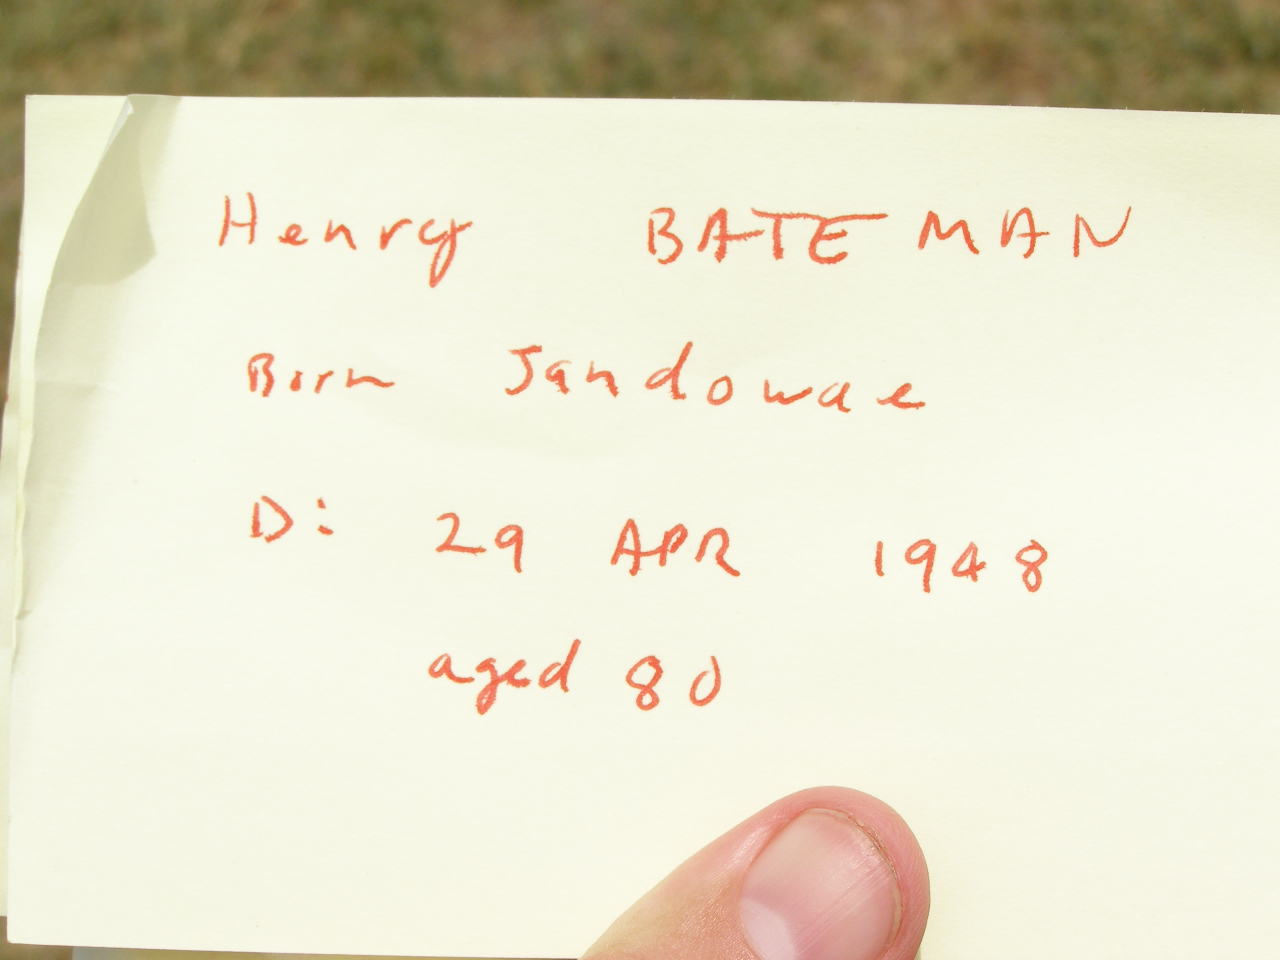 Henry BATEMAN
Born Jandowae
D: 29 APR 1948
aged 80